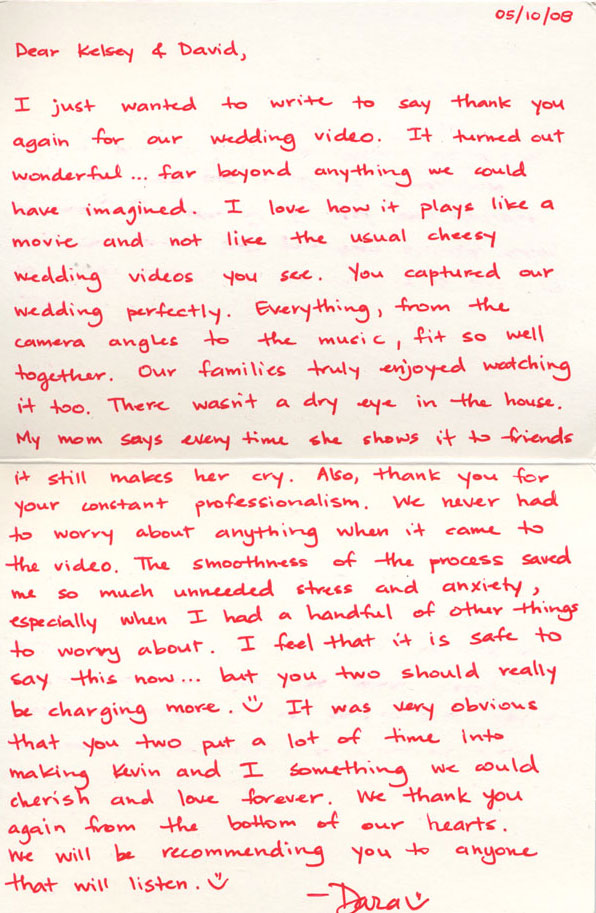 05/10/08
Dear Kelsey & David,
I just wanted to write to say thank you
again for our wedding video. It turned out
wonderful... far beyond anything we could
have imagined. I love how it plays like a
movie and not like the usual cheesy
wedding videos you see. You captured our
wedding perfectly. Everything, from the
camera angles to the music, fit so well
together. Our families truly enjoyed watching
it too. There wasn't a dry eye in the house.
My mom says every time she shows it to friends
it still makes her cry. Also, thank you for
your constant professionalism. We never had
to worry about anything when it came to
the video. The smoothness of the process saved
me so much unneeded stress and anxiety,
especially when I had a handful of other things
to worry about. I feel that it is safe to
say this now... but you two should really
be charging more. It was very obvious
that you two put a lot of time into
making Kevin and I something we could
cherish and love forever. We thank you
again from the bottom of our hearts.
We will be recommending you to anyone
that will listen.
-Dara